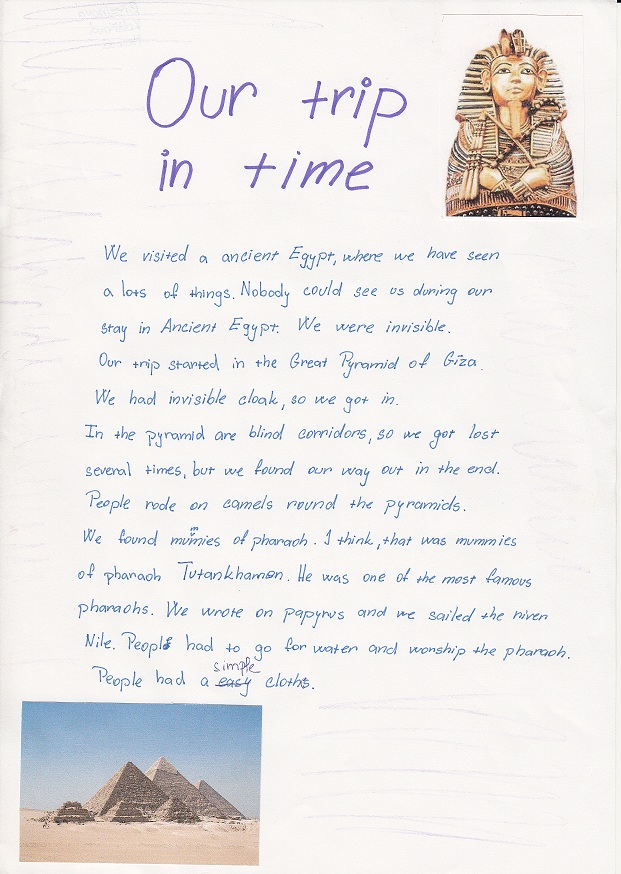 Our trip
in time
We visited a ancient Egypt, where we have seen
a lots of things. Nobody could see us during our
stay in Ancient Egypt. We were invisible.
Our trip started in the Great Pyramid of Giza.
We had invisible cloak, so we got in.
In the pyramid are blind corridors, so we got lost
several times, but we found our way out in the end.
People rode on camels round the pyramids.
We found mummies of pharaoh. I think, that was mummies
of pharaoh Tutankhamon. He was one of the most famous
pharaohs. We wrote on papyrus and we sailed the river
Nile. People had to go for water and worship the pharaoh.
simple
People had a easy cloths.